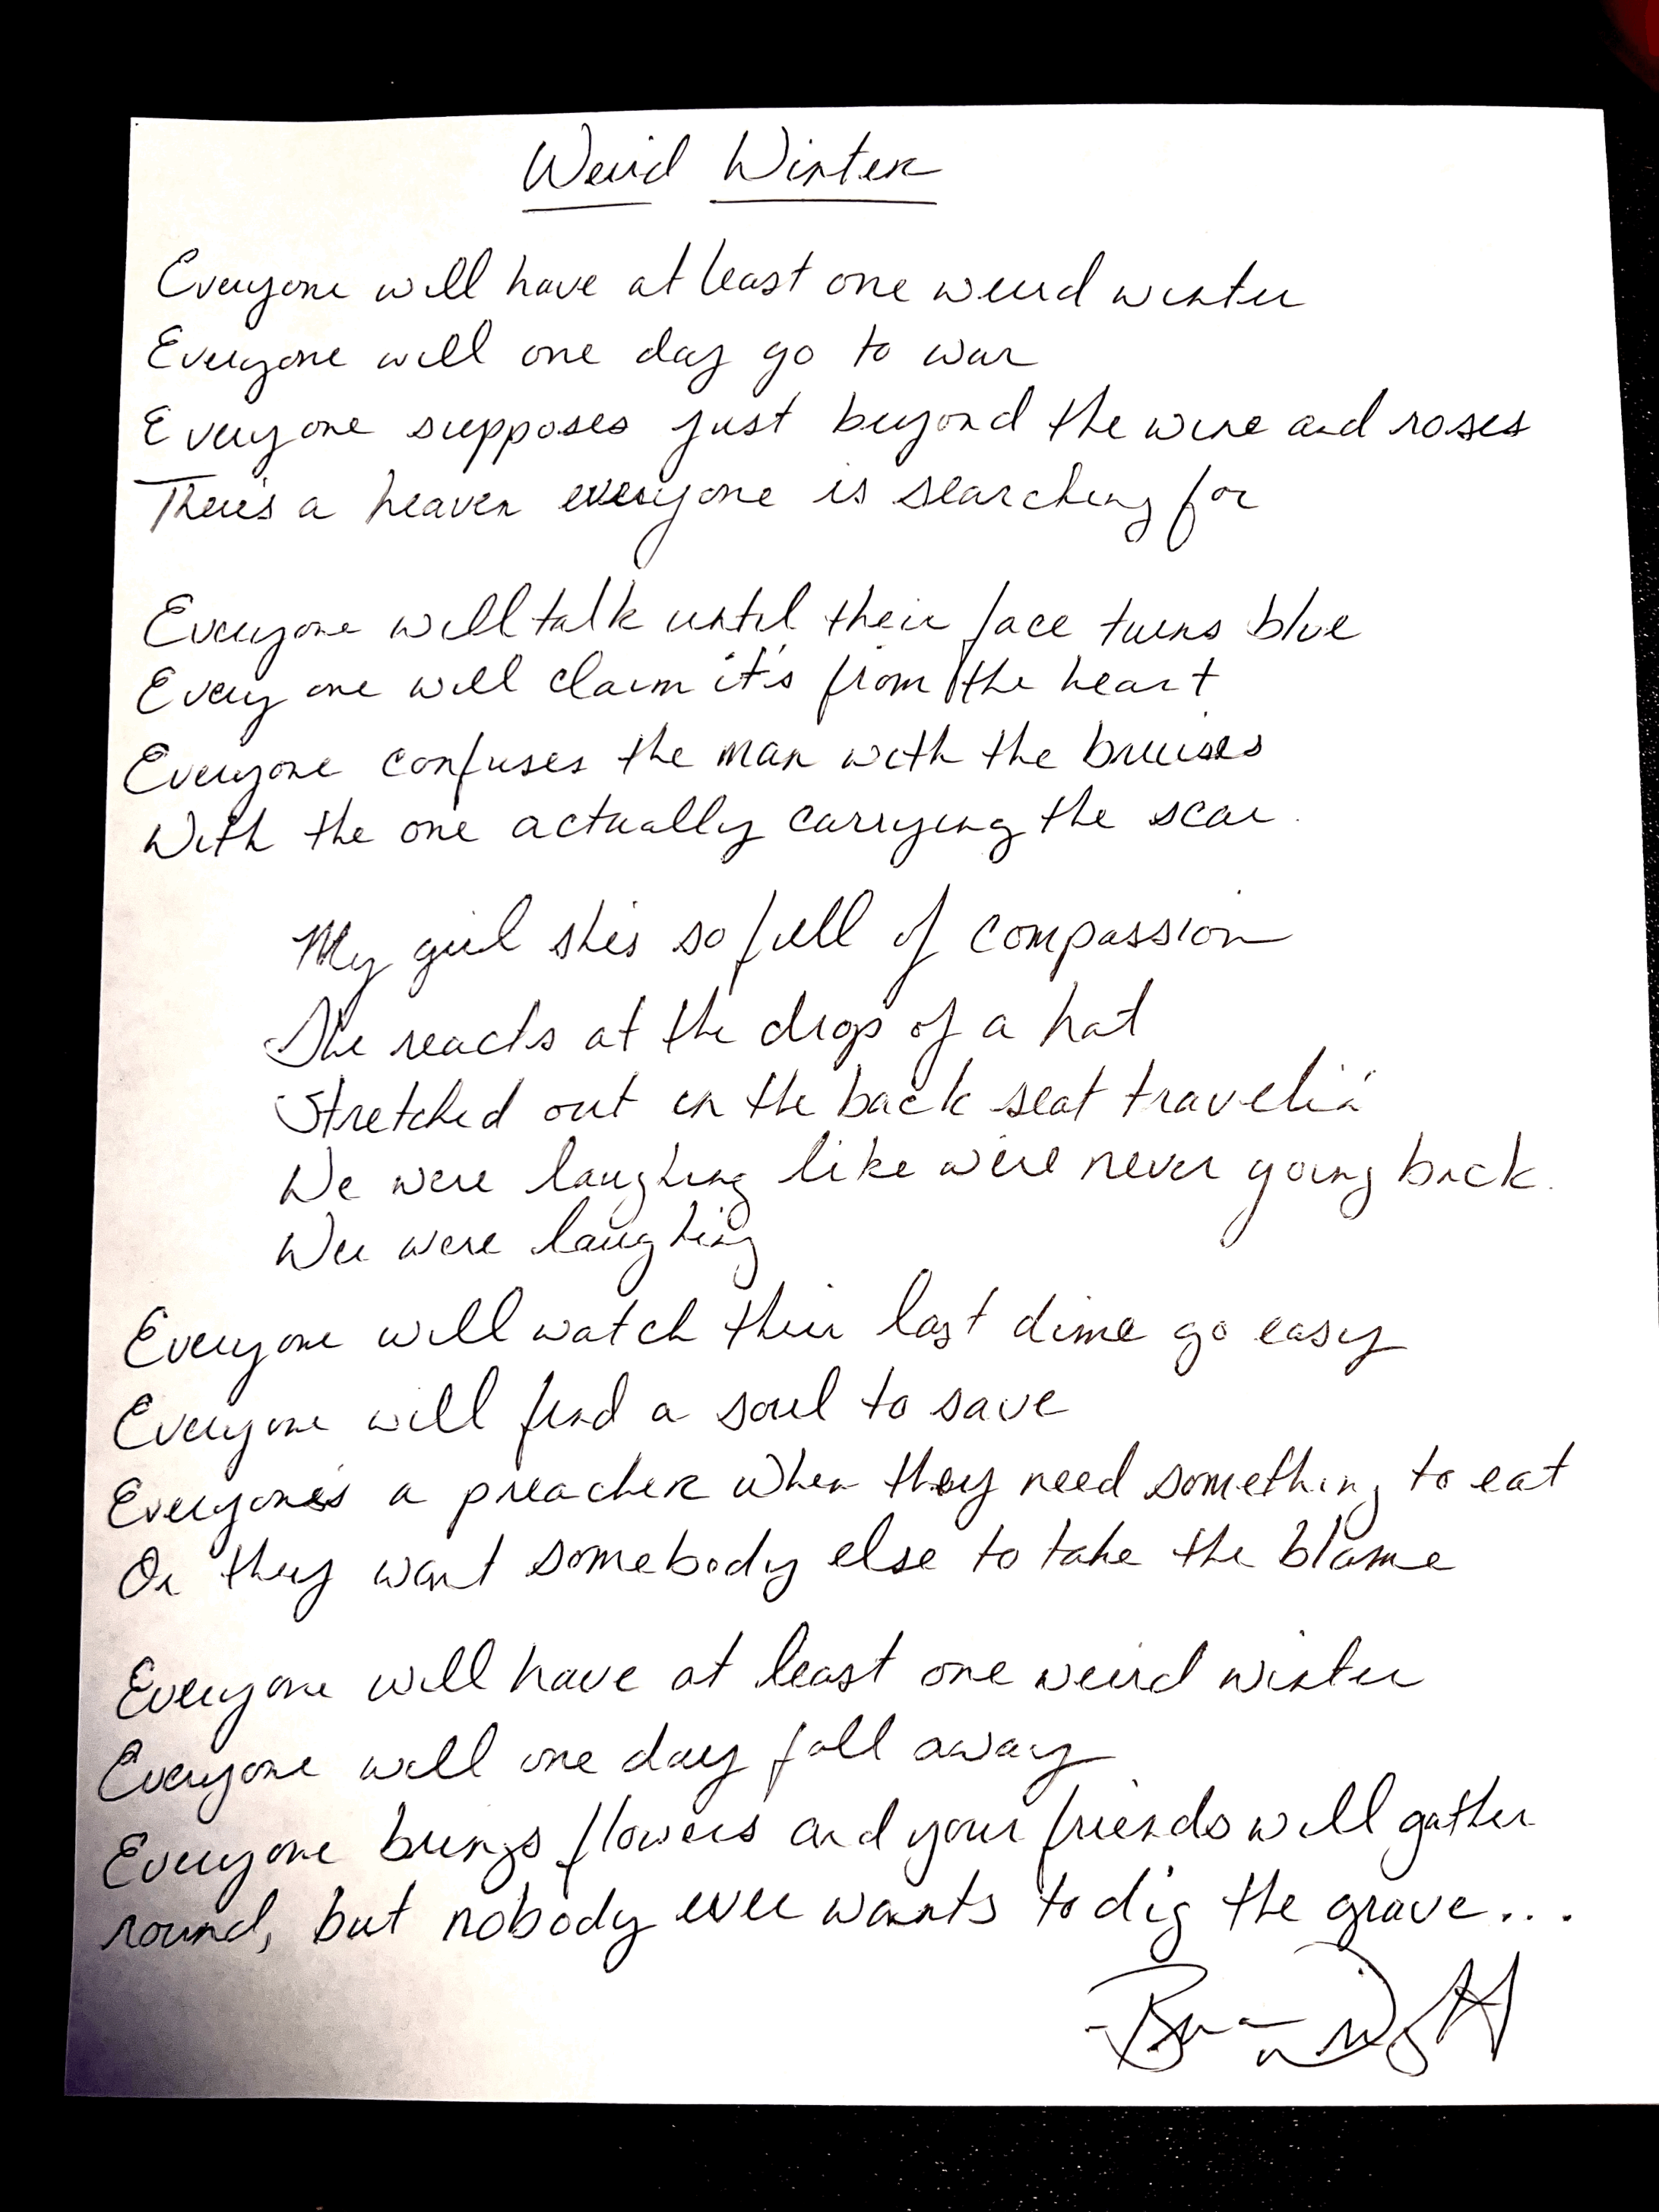 Weird Winter
Everyone will have at least one weird winter
Everyone will one day go to war
Everyone supposes just beyond the wine and roses
There's a heaven everyone is searching for
Everyone will talk until their face turns blue
Everyone will claim it's from the heart
Everyone confuses the man with the bruises
With the one actually carrying the scar.
My girl she's so full of compassion
She reacts at the drop of a hat
Stretched out in the back seat travelin'
We were laughing like we're never going back.
We were laughing
Everyone will watch their last dime go easy
Everyone will find a soul to save
Everyone's a preacher when they need something to eat
Or they want somebody else to take the blame
Everyone will have at least one weird winter
Everyone will one day fall away
Everyone brings flowers and your friends will gather
round, but nobody ever wants to dig the grave...